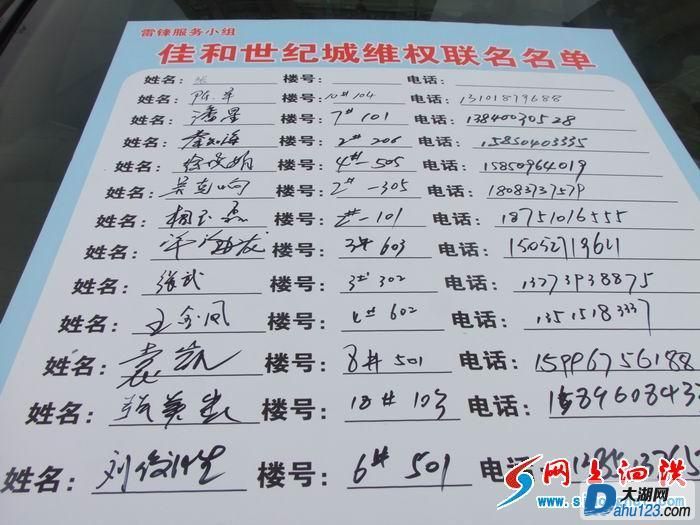 雷锋服务小组
佳和世纪城维权联名名单
姓名: 张 楼号: 电话:
姓名: 陈 军 楼号: 10# 104 电话: 13101879688
姓名: 潘星 楼号: 7# 101 电话: 13840030528
姓名: 秦如海 楼号: 2# 206 电话: 15850403335
姓名: 徐 楼号: 4#-505 电话: 15850964019
姓名: 吴克响 楼号: 2#-305 电话: 18083735579
姓名: 楼号: 2#-101 电话: 18751016555
姓名: 楼号: 3# 603 电话: 15052719611
姓名: 张武 楼号: 3# 302 电话: 13273938875
姓名: 王金凤 楼号: 4# 602 电话: 13515183337
姓名: 袁凯 楼号: 8# 501 电话: 15996756188
姓名: 张 楼号: 18# 103 电话:
姓名: 刘 楼号: 6# 501 电话:
网上泗洪
大湖网
Dahu123.com